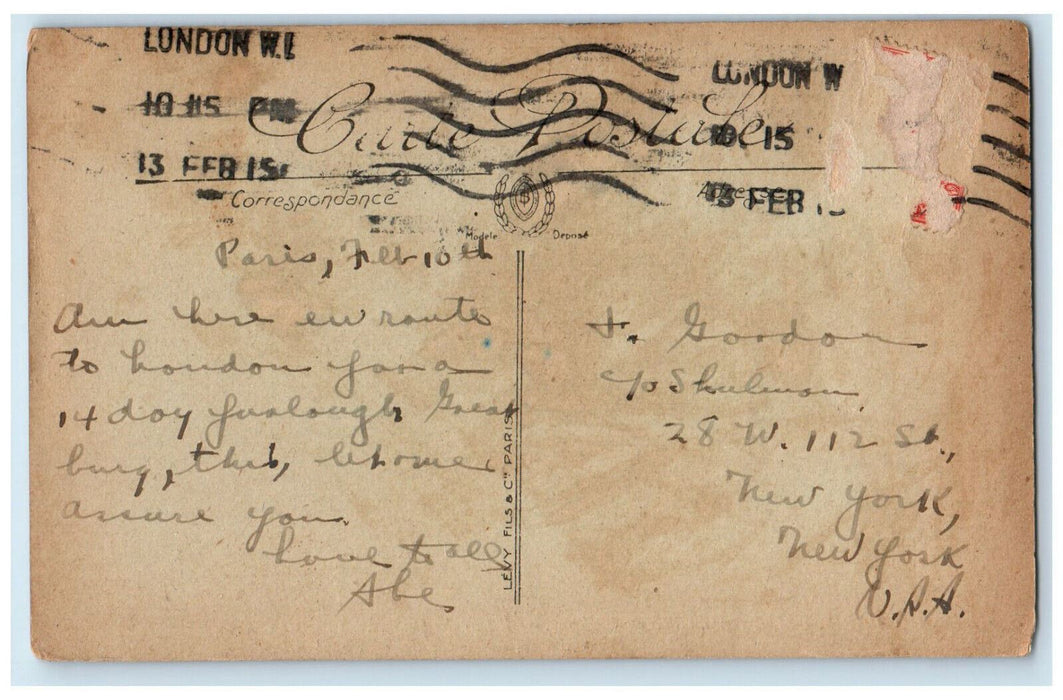 LONDON W.1
10 15 PM
13 FEB 15
LONDON W
10 15
13 FEB 15
Carte Postale
Correspondance
Adresse
Modèle Déposé
Paris, Feb 10th
Am here en route
to London for a
14 day furlough, Great
, this, let me
assure you.
Love to all,
Abe.
LÉVY FILS & Cie PARIS
J. Gordon
c/o Shulman
28 W. 112 St.,
New York,
New York
U.S.A.